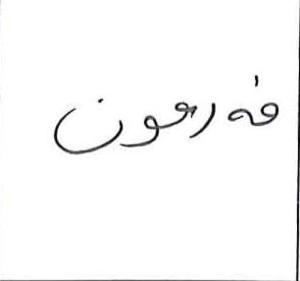 فەرعون